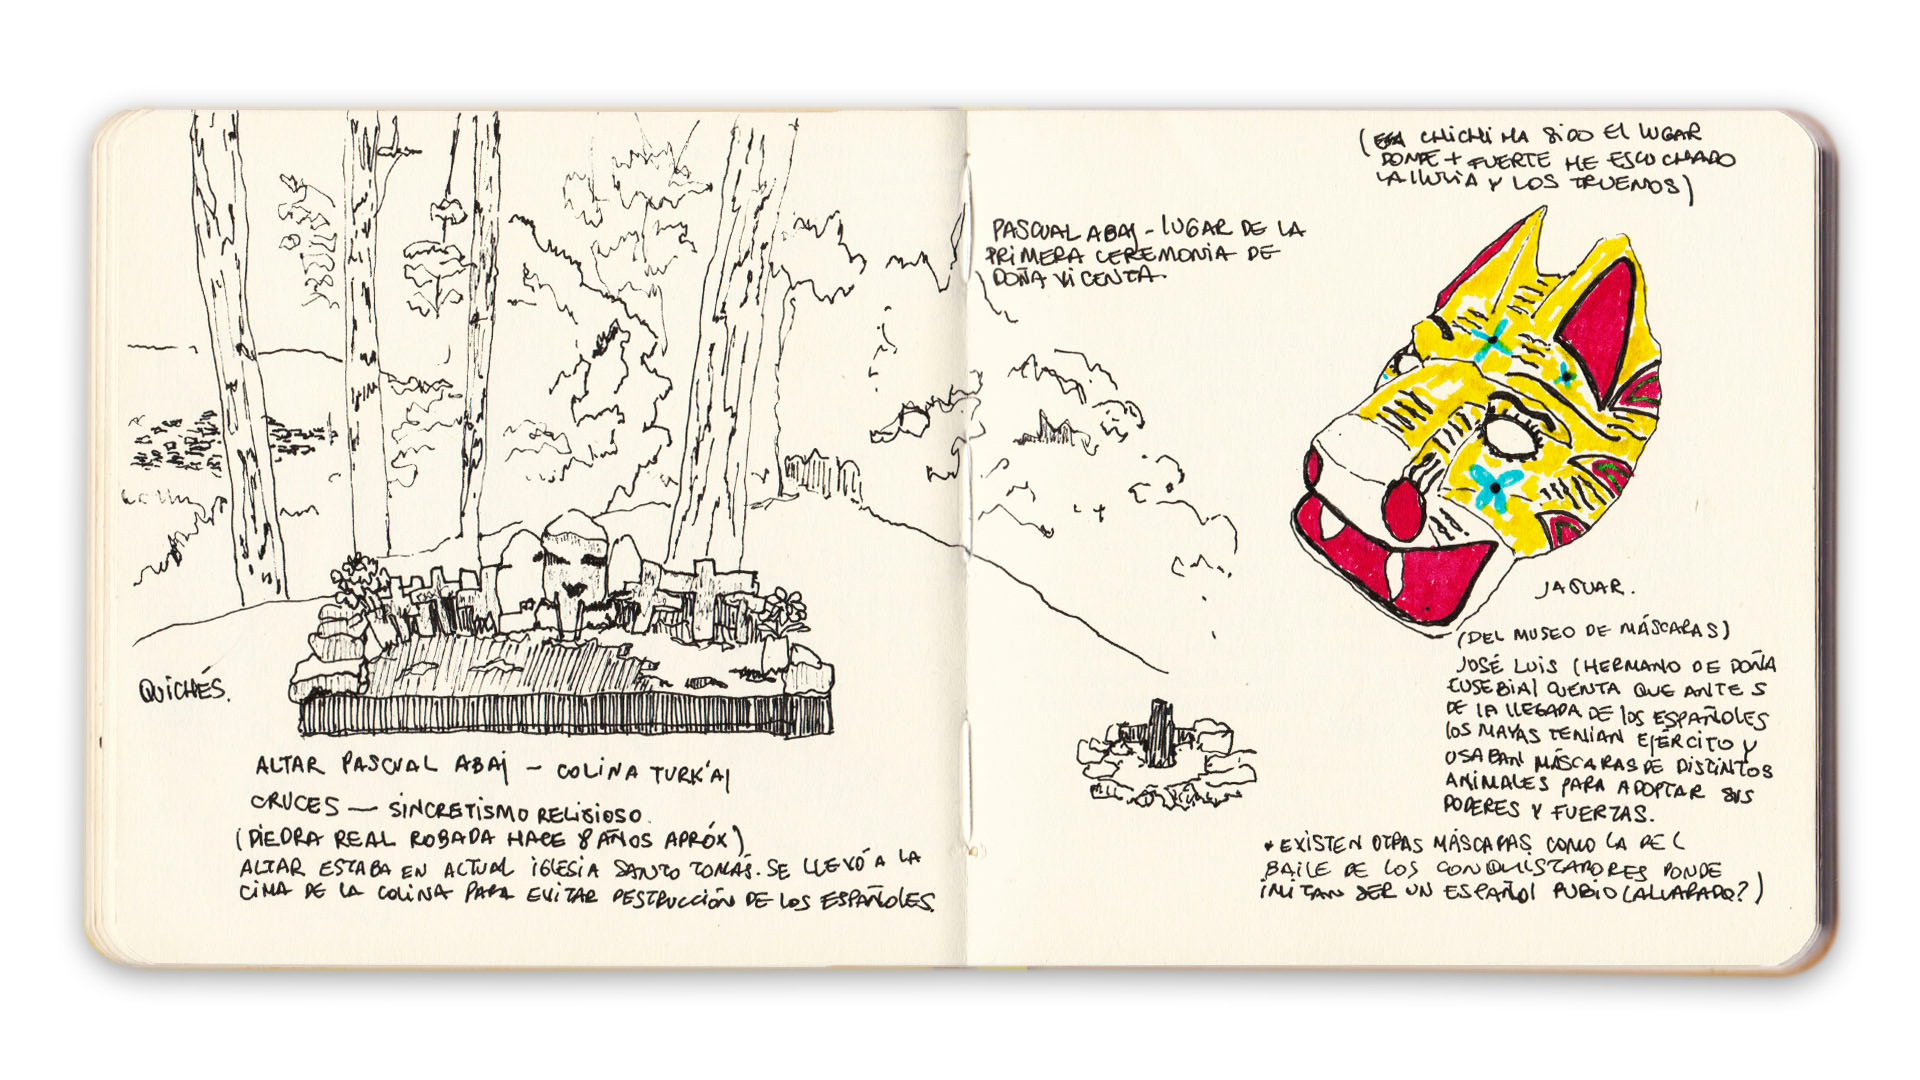 QUICHÉS.
ALTAR PASCUAL ABAJ – COLINA TURK'AJ
CRUCES — SINCRETISMO RELIGIOSO.
(PIEDRA REAL ROBADA HACE 8 AÑOS APRÓX)
ALTAR ESTABA EN ACTUAL IGLESIA SANTO TOMÁS. SE LLEVÓ A LA
CIMA DE LA COLINA PARA EVITAR DESTRUCCIÓN DE LOS ESPAÑOLES.
PASCUAL ABAJ – LUGAR DE LA
PRIMERA CEREMONIA DE
DOÑA VICENTA.
( CHICHI HA SIDO EL LUGAR
DONDE + FUERTE HE ESCUCHADO
LA LLUVIA Y LOS TRUENOS)
JAGUAR.
(DEL MUSEO DE MÁSCARAS)
JOSÉ LUIS (HERMANO DE DOÑA
EUSEBIA) CUENTA QUE ANTES
DE LA LLEGADA DE LOS ESPAÑOLES
LOS MAYAS TENÍAN EJÉRCITO Y
USABAN MÁSCARAS DE DISTINTOS
ANIMALES PARA ADOPTAR SUS
PODERES Y FUERZAS.
* EXISTEN OTRAS MÁSCARAS COMO LA DEL
BAILE DE LOS CONQUISTADORES DONDE
IMITAN SER UN ESPAÑOL RUBIO (ALVARADO?)